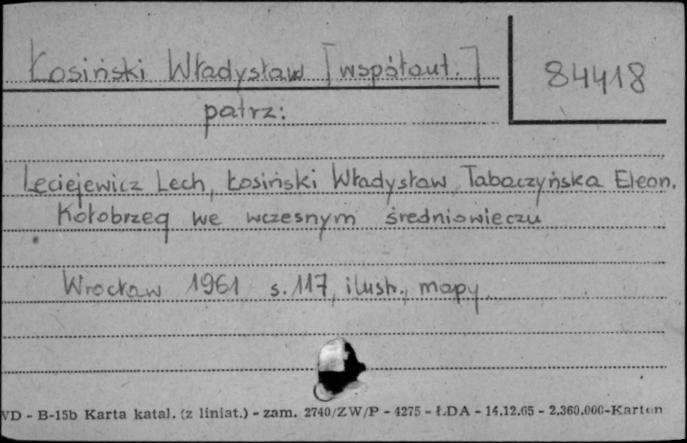 Łosiński Władysław [współaut.]
84418
patrz:
Leciejewicz Lech, Łosiński Władysław, Tabaczyńska Eleon.
Kołobrzeg we wczesnym średniowieczu
Wrocław 1961 s. 117, ilustr., mapy
VD - B-15b Karta katal. (z liniat.) - zam. 2740/ZW/P - 4275 - ŁDA - 14.12.65 - 2.360.000-Karton